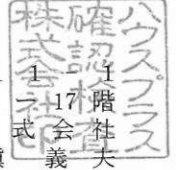 ハウスプラス
確認検査
株式会社印
1 - 1
17 階
式 会 社
義 夫